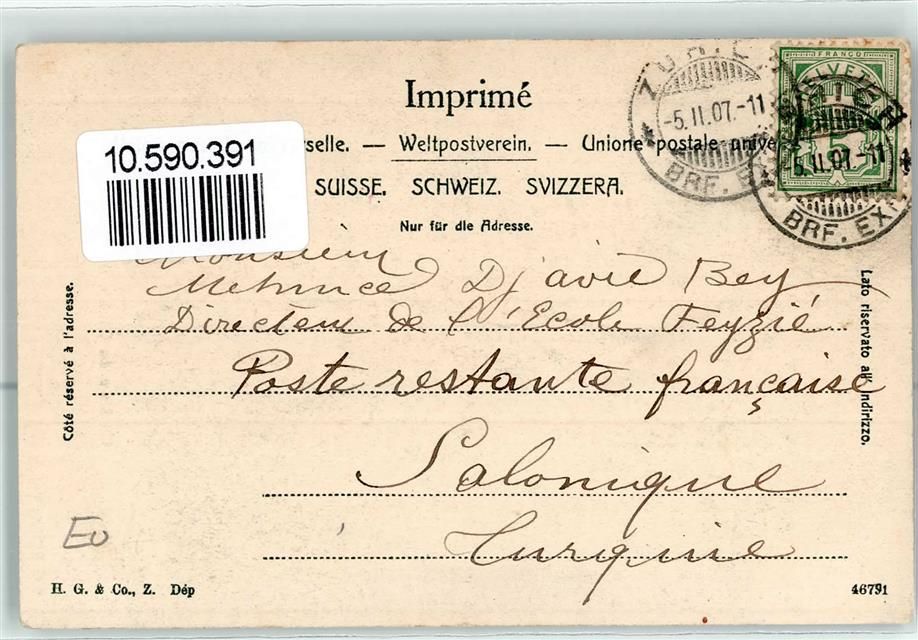 Imprimé
10.590.391
rselle. — Weltpostverein. — Unione postale unive
SUISSE. SCHWEIZ. SVIZZERA.
Nur für die Adresse.
ZÜRICH
-5.II.07.-11
BRF. EX
FRANCO
HELVETIA
5
-5.II.07.-11
BRF. EX
Monsieur
Mehmed Djavid Bey
Directeur de l'Ecole Feyzié
Poste restante française
Salonique
Turquie
Côté réservé à l'adresse.
Lato riservato all'indirizzo.
Eu
H. G. & Co., Z. Dép
46791